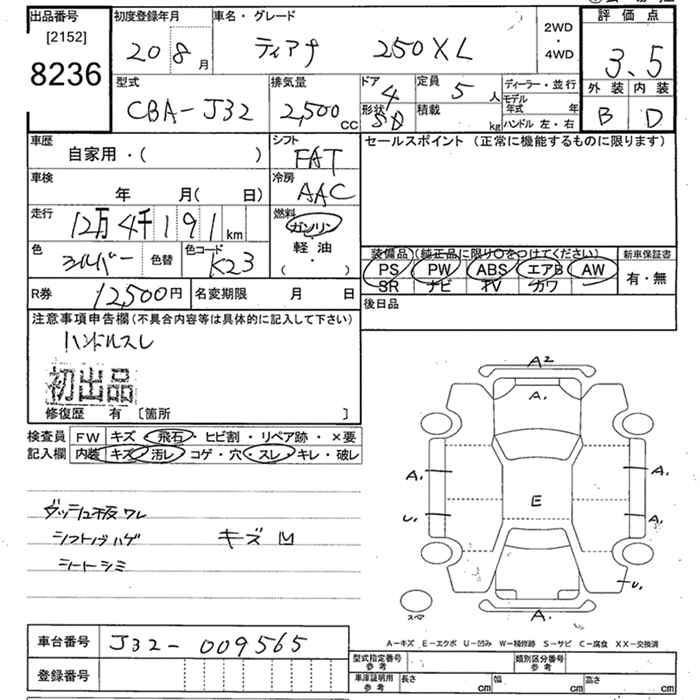 出品番号
[2152]
8236
初度登録年月
20 8月
車名・グレード
ティアナ 250XL
2WD
・
4WD
評価点
3.5
外装 内装
B D
型式
CBA-J32
排気量
2,500 CC
ドア 4
形状 SD
定員 5 人
積載 kg
ディーラー・並行
モデル年式 年
ハンドル 左・右
車歴
自家用・( )
車検
年 月( 日)
走行
12万4千191 km
色
シルバー
色替
色コード
K23
シフト
FAT
冷房
AAC
燃料
ガソリン
軽油
( ・ )
セールスポイント (正常に機能するものに限ります)
装備品 (純正品に限り○をつけてください)
PS PW ABS エアB AW
SR ナビ TV カワ
新車保証書
有・無
後日品
R券 12,500円
名変期限 月 日
注意事項申告欄(不具合内容等は具体的に記入して下さい)
ハンドルスレ
初出品
修復歴 有 [箇所 ]
検査員
記入欄
FW キズ・飛石・ヒビ割・リペア跡・×要
内装 キズ・汚レ・コゲ・穴・スレ・キレ・破レ
ダッシュ板ワレ
シフトノブハゲ キズ凹
シートシミ
A2
A.
A. A.
E
U. A.
U.
スペア
A.
A-キズ E-エクボ U-凹み W-補修跡 S-サビ C-腐食 XX-交換済
車台番号 J32-009565
登録番号
型式指定番号 参考
類別区分番号 参考
車庫証明用 参考
長さ cm 幅 cm 高さ cm